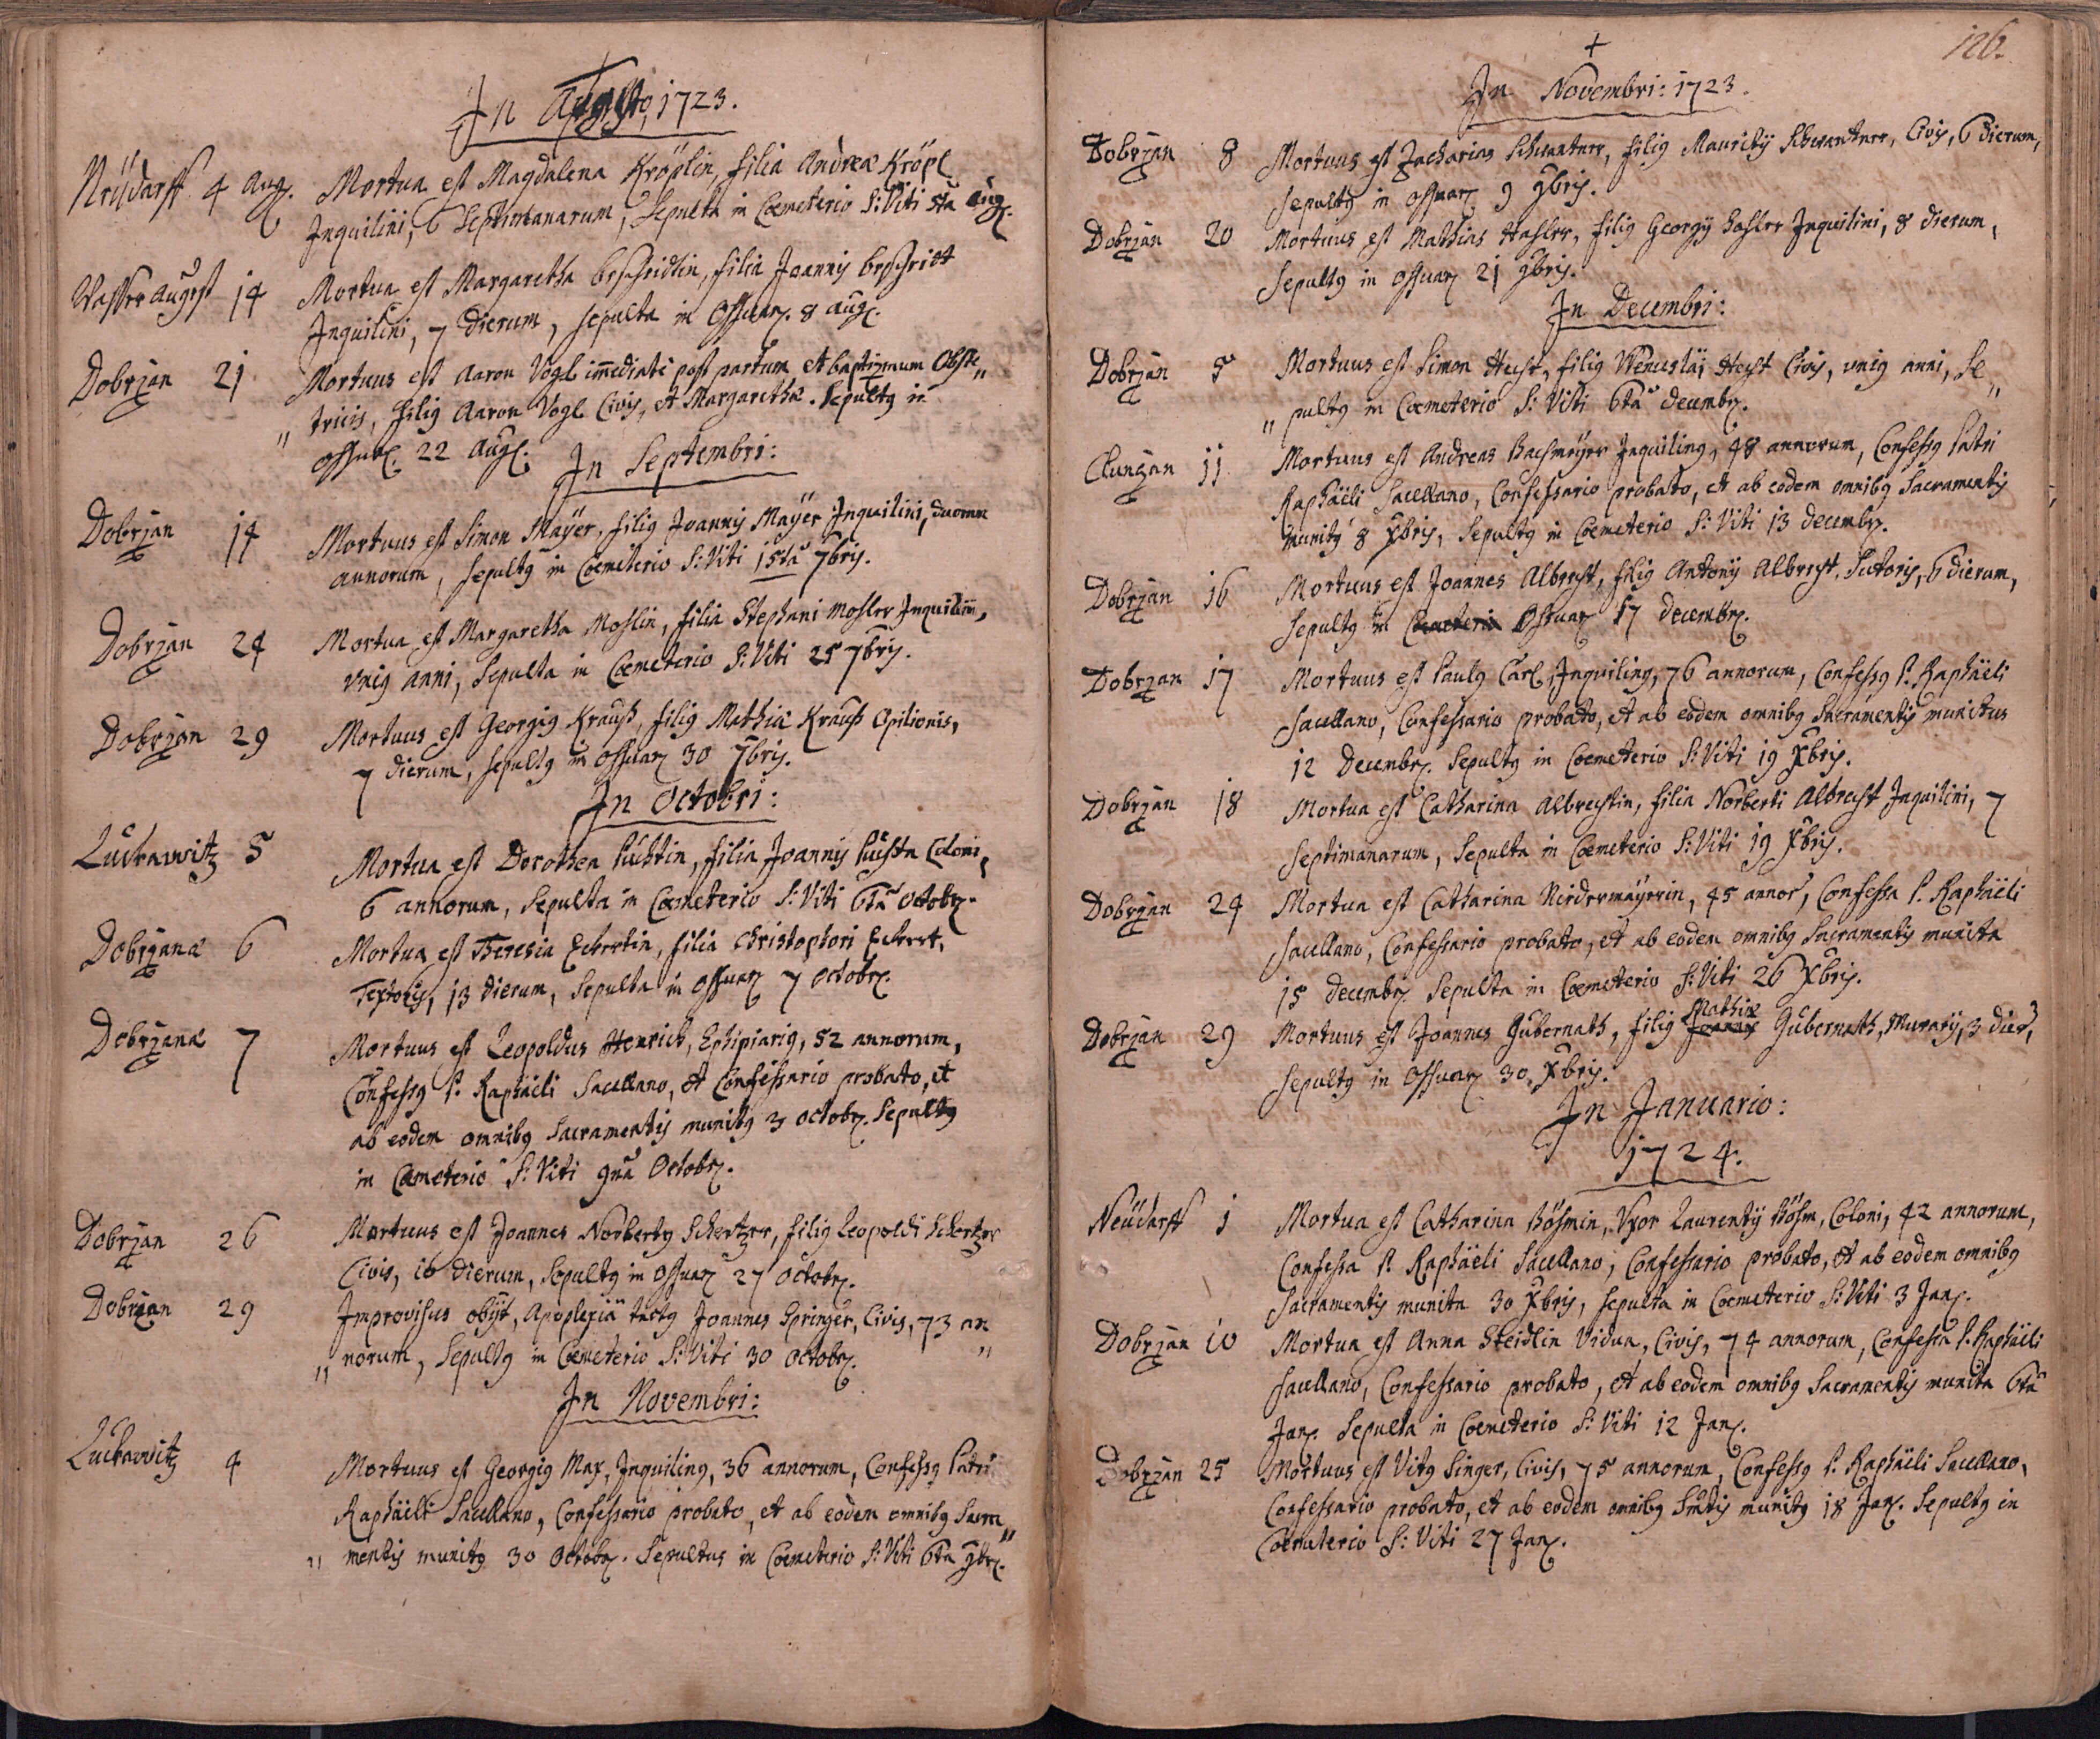 In Augusto, 1723.
Neüdorff 4 Aug. Mortua est Magdalena Kröplin, filia Andreæ Kröpl
Inquilini, 6 Septimanarum, Sepulta in Cœmeterio S: Viti 5ta Aug.
Wasser august 14 Mortua est Margaretha filia Joannis
Inquilini, 7 dierum, sepulta in Ossuar. 8 aug.
Dobrzan 21 Mortuus est Aaron Vogl im̄ediatè post partum et baptizmum Obste„
„tricis, filig Aaron Vogl Civis, et Margarethæ. Sepultg in
ossuar. 22 Aug.
In Septembri:
Dobrzan 14 Mortuus est Simon Maÿer, filig Joannis Maÿer Inquilini, duorum
annorum, sepultg in Cœmeterio S: Viti 15ta 7bris.
Dobrzan 24 Mortua est Margaretha Moslin, filia Stephani Mosler Inquilini,
vnig anni, Sepulta in Cœmeterio S: Viti 25 7bris.
Dobrzan 29 Mortuus est Georgig Krauß, filig Mathiæ Krauß Opilionis,
7 dierum, sepultg in Ossuar. 30 7bris.
In Octobri:
Luckawitz 5 Mortua est Dorothea filia Joannis Coloni,
6 annorum, Sepulta in Cœmeterio S: Viti 6ta Octobr.
Dobrzanæ 6 Mortua est Theresia Eckertin, filia Christophori Eckert,
Textoris, 13 dierum, Sepulta in Ossuar. 7 Octobr.
Dobrzanæ 7 Mortuus est Leopoldus Henrich, Ephipiarig, 52 annorum,
Confessg P. Raphaëli Sacellano, et Confessario probato, et
ab eodem omnibg Sacramentis munitg 3 octobr. Sepultg
in Cæmeterio S: Viti 9na Octobr.
Dobrzan 26 Mortuus est Joannes Norbertg Schertzer, filig Leopoldi Schertzer
Civis, 10 dierum, Sepultg in Ossuar. 27 Octobr.
Dobrzan 29 Improvisus obijt, Apoplexiâ tactg Joannes Springer, Civis, 73 an
„norum, Sepultg in Cœmeterio S: Viti 30 Octobr. „
In Novembri:
Luckawitz 4 Mortuus est Georgig Max, Inquiling, 36 annorum, Confessg Patri
Raphaëli Sacellano, Confessario probato, et ab eodem omnibg Sacra„
„mentis munitg 30 Octobr. Sepultus in Cœmeterio S: Viti 6ta 9br.
126.
In Novembri: 1723.
Dobrzan 8 Mortuus est Zacharias Schwantner, filig Mauritij Schwantner, Civis, 6 dierum,
Sepultg in Ossuar. 9 9bris.
Dobrzan 20 Mortuus est Mathias Hasler, filig Georgij Hasler Inquilini, 8 dierum,
Sepultg in Ossuar. 21 9bris.
In Decembri:
Dobrzan 5 Mortuus est Simon Hecht, filig Wenceslai Hecht Civis, vnig anni, Se„
„pultg in Cœmeterio S: Viti 6ta decembr.
11 Mortuus est Andreas Bachmeÿer Inquiling, 48 annorum, Confessg Patri
Raphaëli Sacellano, Confessario probato, et ab eodem omnibg Sacramentis
munitg 8 Xbris, Sepultg in Cœmeterio S: Viti 13 decembr.
Dobrzan 16 Mortuus est Joannes Albrecht, filig Antonij Albrecht, Sutoris, 6 dierum,
sepultg in Cœmeterio Ossuar. 17 decembr.
Dobrzan 17 Mortuus est Paulg Carl, Inquiling, 76 annorum, Confessg P. Raphaëli
Sacellano, Confessario probato, et ab eodem omnibg Sacramentis munitus
12 Decembr. Sepultg in Cœmeterio S: Viti 19 Xbris.
Dobrzan 18 Mortua est Catharina Albrechtin, filia Norberti Albrecht Inquilini, 7
Septimanarum, Sepulta in Cœmeterio S: Viti 19 Xbris.
Dobrzan 24 Mortua est Catharina Nidermaÿerin, 45 annor, Confessa P. Raphaëli
Sacellano, Confessario probato, et ab eodem omnibg Sacramentis munita
15 decembr. Sepulta in Cœmeterio S: Viti 26 Xbris.
Mathiæ
Dobrzan 29 Mortuus est Joannes Gubernath, filig Joannis Gubernath, Murarij, 3 dier,
Sepultg in Ossuar. 30 Xbris.
In Januario:
1724.
Neüdorff 1 Mortua est Catharina Böhmin, Vxor Laurentij Böhm, Coloni, 42 annorum,
Confessa P. Raphaëli Sacellano, Confessario probato, et ab eodem omnibg
Sacramentis munita 30 Xbris, sepulta in Cœmeterio S: Viti 3 Jan.
Dobrzan 10 Mortua est Anna Steidlin Vidua, Civis, 74 annorum, Confessa P. Raphaëli
Sacellano, Confessario probato, et ab eodem omnibg Sacramentis munita 6ta
Jan. Sepulta in Cœmeterio S: Viti 12 Jan.
Dobrzan 25 Mortuus est Vitg Singer, Civis, 75 annorum, Confessg P. Raphaëli Sacellano,
Confessario probato, et ab eodem omnibg Smtis munitg 18 Jan. Sepultg in
Cœmeterio S: Viti 27 Jan.